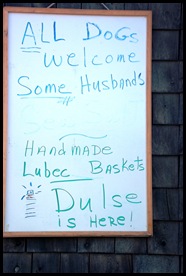 ALL DOGS
welcome
Some Husbands
HandMADE
Lubec Baskets
Dulse
is HERE!